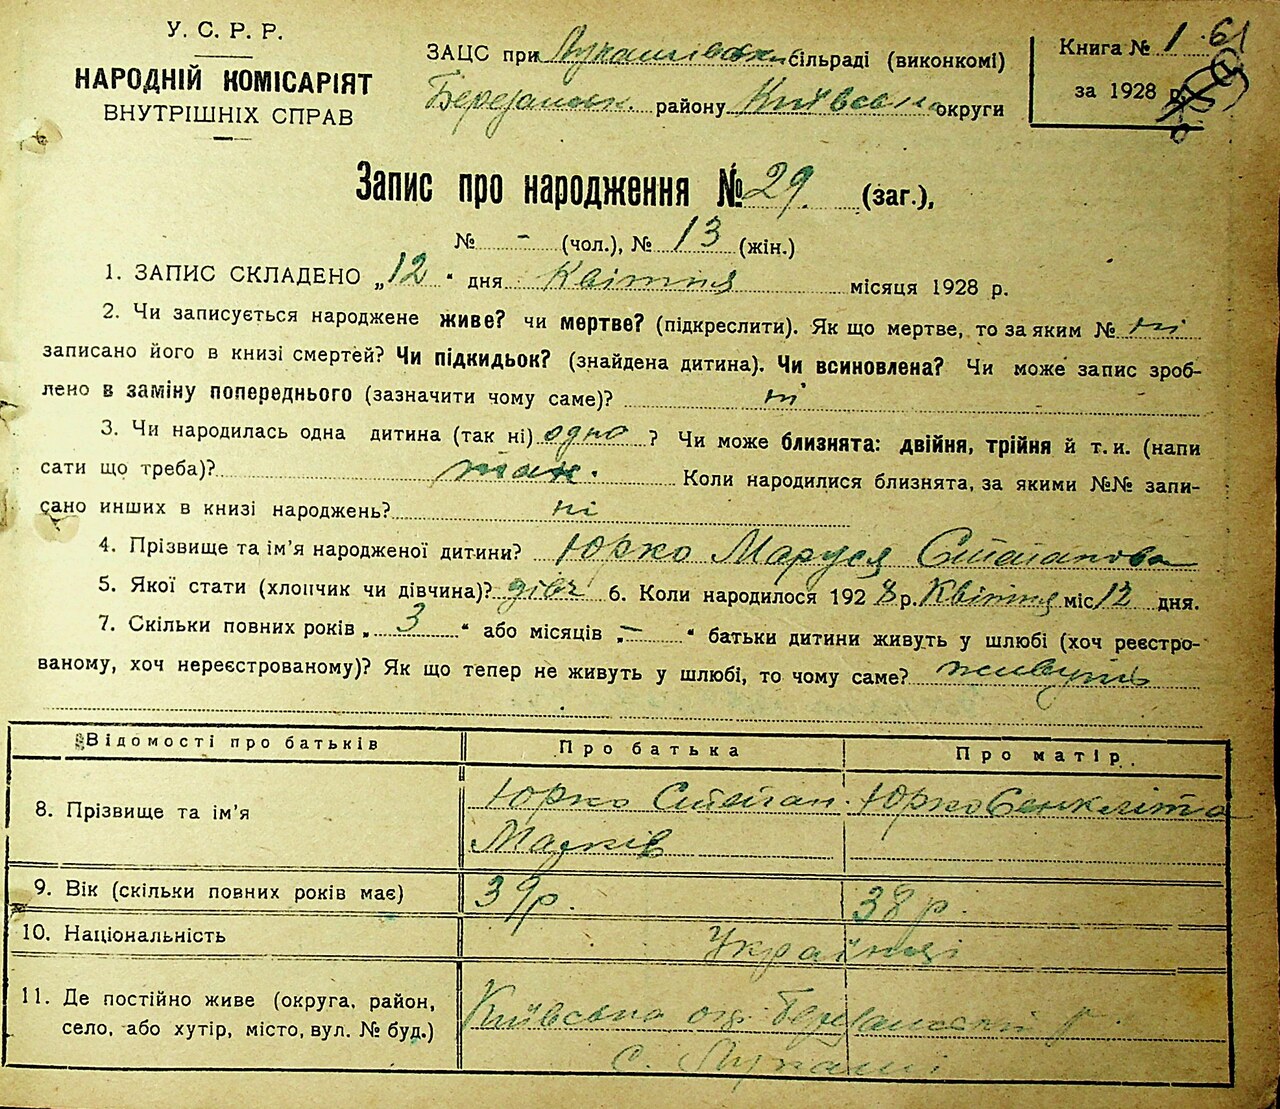 У. С. Р. Р.
НАРОДНІЙ КОМІСАРІЯТ
ВНУТРІШНІХ СПРАВ
ЗАЦС при Лукашівській сільраді (виконкомі)
Березанськ. району Київська округи
Книга № 1
61
за 1928 р.
Запис про народження № 29. (заг.),
№ - (чол.), № 13 (жін.)
1. ЗАПИС СКЛАДЕНО „12" дня Квітня місяця 1928 р.
2. Чи записується народжене живе? чи мертве? (підкреслити). Як що мертве, то за яким № ні
записано його в книзі смертей? Чи підкидьок? (знайдена дитина). Чи всиновлена? Чи може запис зроб-
лено в заміну попереднього (зазначити чому саме)? ні
3. Чи народилась одна дитина (так ні) одно ? Чи може близнята: двійня, трійня й т. и. (напи
сати що треба)? так. Коли народилися близнята, за якими №№ запи-
сано инших в книзі народжень? ні
4. Прізвище та ім'я народженої дитини? Юрко Маруся Степанова
5. Якої стати (хлопчик чи дівчина)? дівч 6. Коли народилося 1928 р. Квітня міс 12 дня.
7. Скільки повних років „3" або місяців „-" батьки дитини живуть у шлюбі (хоч реєстро-
ваному, хоч нереєстрованому)? Як що тепер не живуть у шлюбі, то чому саме? живуть
Відомості про батьків Про батька Про матір.
8. Прізвище та ім'я Юрко Степан. Юрко Секкліта
Марків
9. Вік (скільки повних років має) 39 р. 38 р.
10. Національність Українці
11. Де постійно живе (округа, район, Київська окр. Березанський р.
село, або хутір, місто, вул. № буд.) с. Лукаші